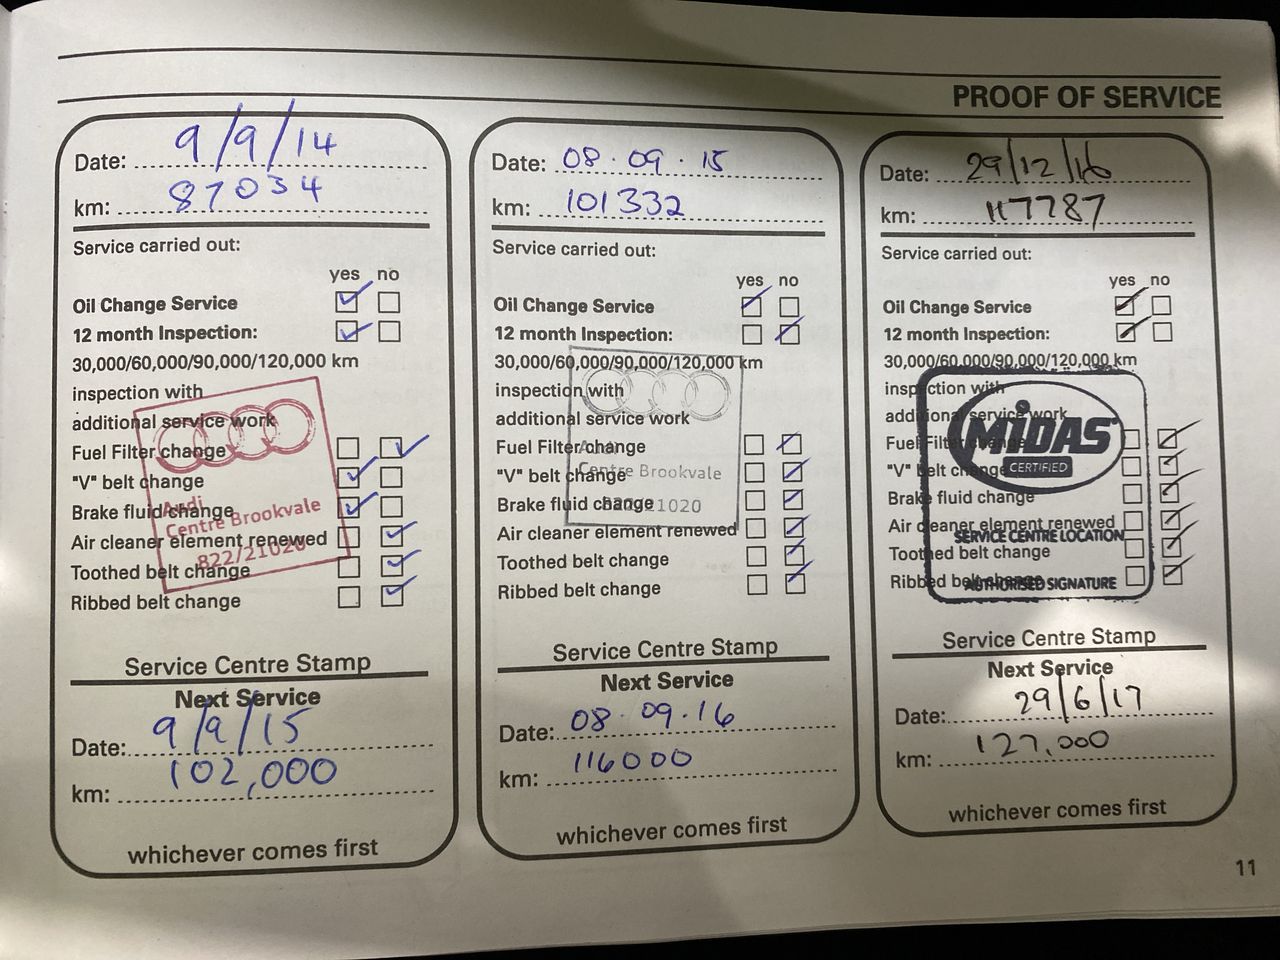 PROOF OF SERVICE
Date: 9/9/14
km: 87034
Service carried out:
yes no
Oil Change Service
12 month Inspection:
30,000/60,000/90,000/120,000 km
inspection with
additional service work
Fuel Filter change
"V" belt change
Brake fluid change
Air cleaner element renewed
Toothed belt change
Ribbed belt change
Audi
Centre Brookvale
822/21020
Service Centre Stamp
Next Service
Date: 9/9/15
km: 102,000
whichever comes first
Date: 08.09.15
km: 101332
Service carried out:
yes no
Oil Change Service
12 month Inspection:
30,000/60,000/90,000/120,000 km
inspection with
additional service work
Fuel Filter change
"V" belt change
Brake fluid change
Air cleaner element renewed
Toothed belt change
Ribbed belt change
Centre Brookvale
Service Centre Stamp
Next Service
Date: 08.09.16
km: 116000
whichever comes first
Date: 29/12/16
km: 117787
Service carried out:
yes no
Oil Change Service
12 month Inspection:
30,000/60,000/90,000/120,000 km
inspection with
additional service work
Fuel Filter change
"V" belt change
Brake fluid change
Air cleaner element renewed
Toothed belt change
Ribbed belt change
MIDAS
CERTIFIED
SERVICE CENTRE LOCATION
AUTHORISED SIGNATURE
Service Centre Stamp
Next Service
Date: 29/6/17
km: 127,000
whichever comes first
11